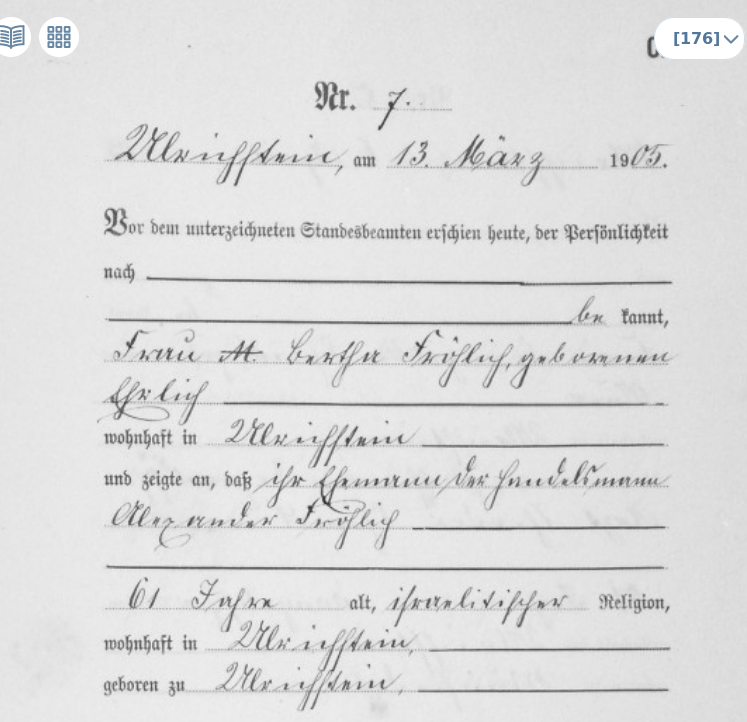 [176]
C.
Nr. 7.
Ulrichstein, am 13. März 1905.
Vor dem unterzeichneten Standesbeamten erschien heute, der Persönlichkeit
nach
be kannt,
Frau M. Bertha Fröhlich, geborenen
Ehrlich
wohnhaft in Ulrichstein
und zeigte an, daß ihr Ehemann der Handelsmann
Alexander Fröhlich
61 Jahre alt, israelitischer Religion,
wohnhaft in Ulrichstein,
geboren zu Ulrichstein,